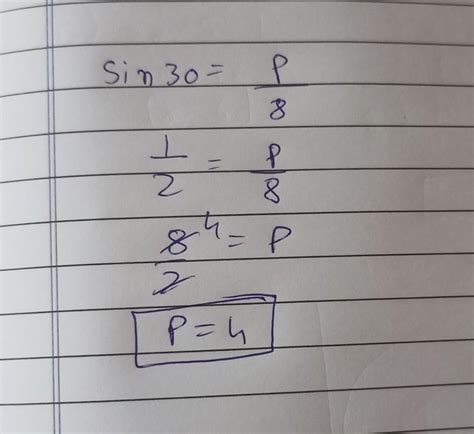 Sin 30 = P/8
1/2 = P/8
8/2 4 = P
P = 4